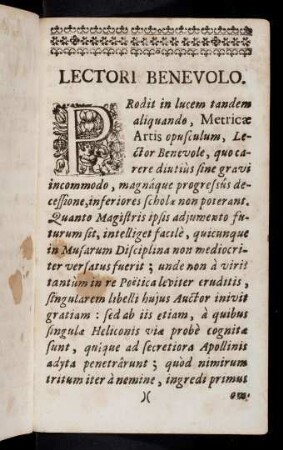 LECTORI BENEVOLO.
PRodit in lucem tandem
aliquando, Metricæ
Artis opusculum, Le-
ctor Benevole, quo ca-
rere diutiùs sine gravi
incommodo, magnáque progressûs de-
cessione, inferiores scholæ non poterant.
Quanto Magistris ipsis adjumento fu-
turum sit, intelliget facilè, quicunque
in Musarum Disciplina non mediocri-
ter versatus fuerit; unde non à viris
tantùm in re Poëtica leviter eruditis,
singularem libelli hujus Auctor inivit
gratiam: sed ab iis etiam, à quibus
singulæ Heliconis viæ probè cognitæ
sunt, quique ad secretiora Apollinis
adyta penetrârunt; quòd nimirum
tritum iter à nemine, ingredi primus
)( om-